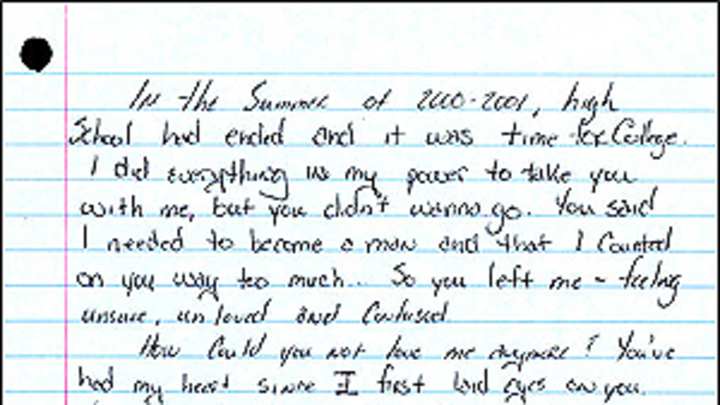 In the Summer of 2000-2001, high
School had ended and it was time for College.
I did everything in my power to take you
with me, but you didn't wanna go. You said
I needed to become a man and that I Counted
on you way too much... So you left me - feeling
unsure, unloved and Confused.
How Could you not love me anymore? You've
had my heart since I first laid eyes on you.